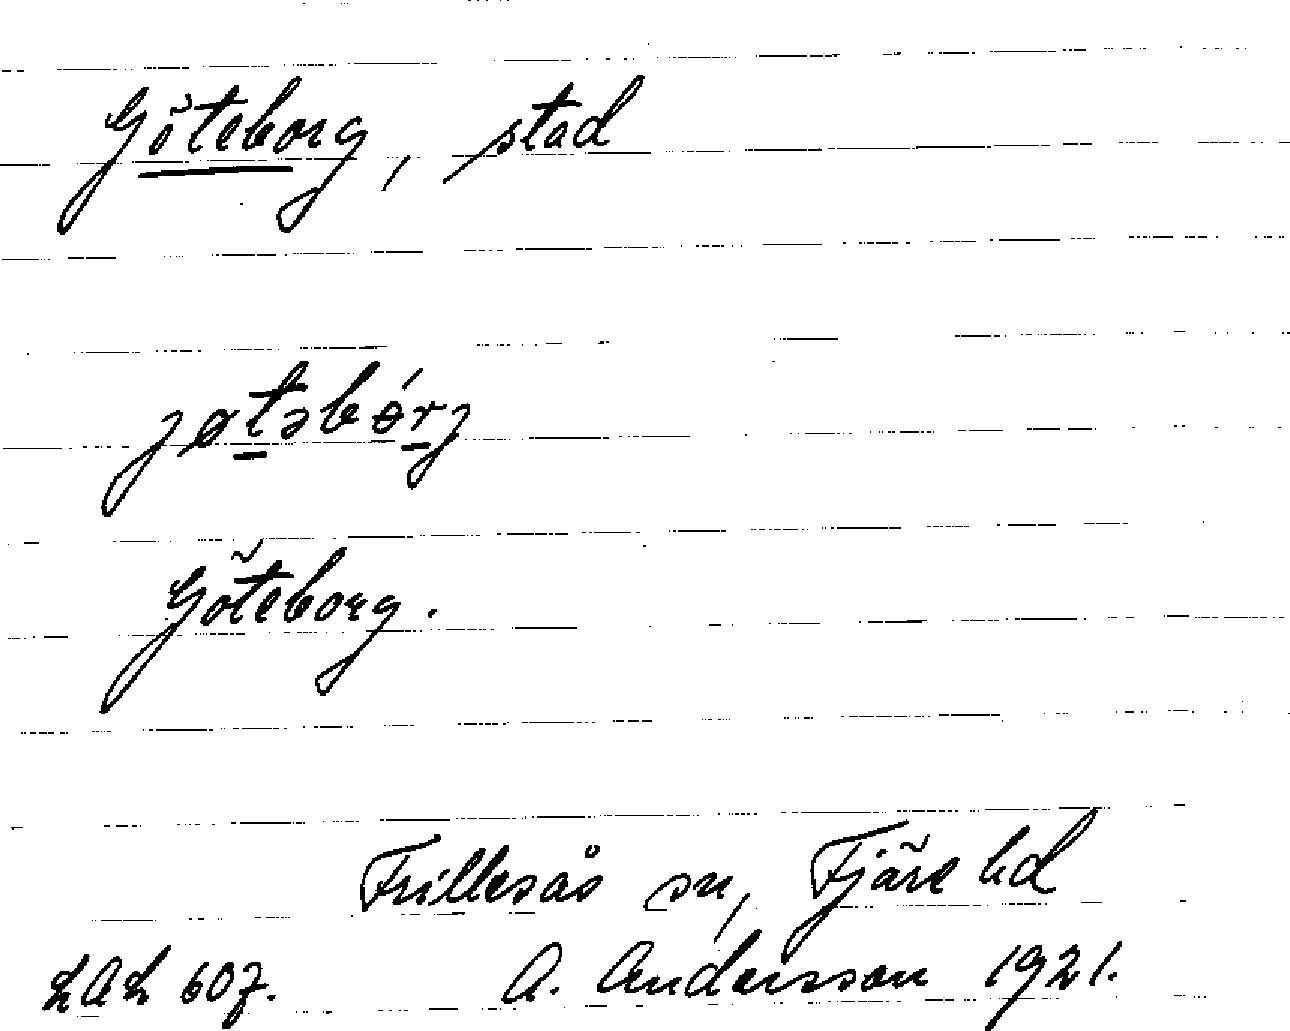 Göteborg, stad
jøtəbɵ́rj
Göteborg.
Frillesås sn, Fjäre hd
LAL 607. A. Andersson 1921.